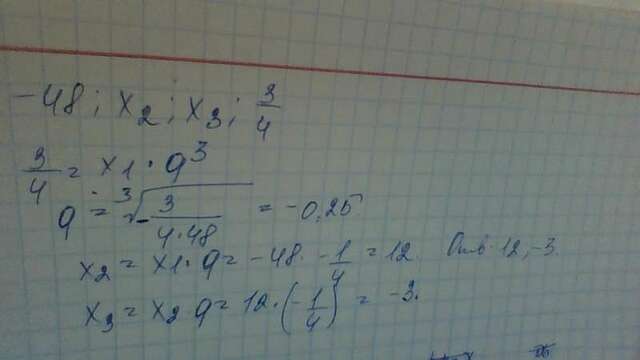 -48; x₂; x₃; 3/4
3/4 = x₁ · q³
q = ∛(-3/(4·48)) = -0,25
x₂ = x₁ · q = -48 · -1/4 = 12 Отв 12, -3.
x₃ = x₂ q = 12 · (-1/4) = -3.